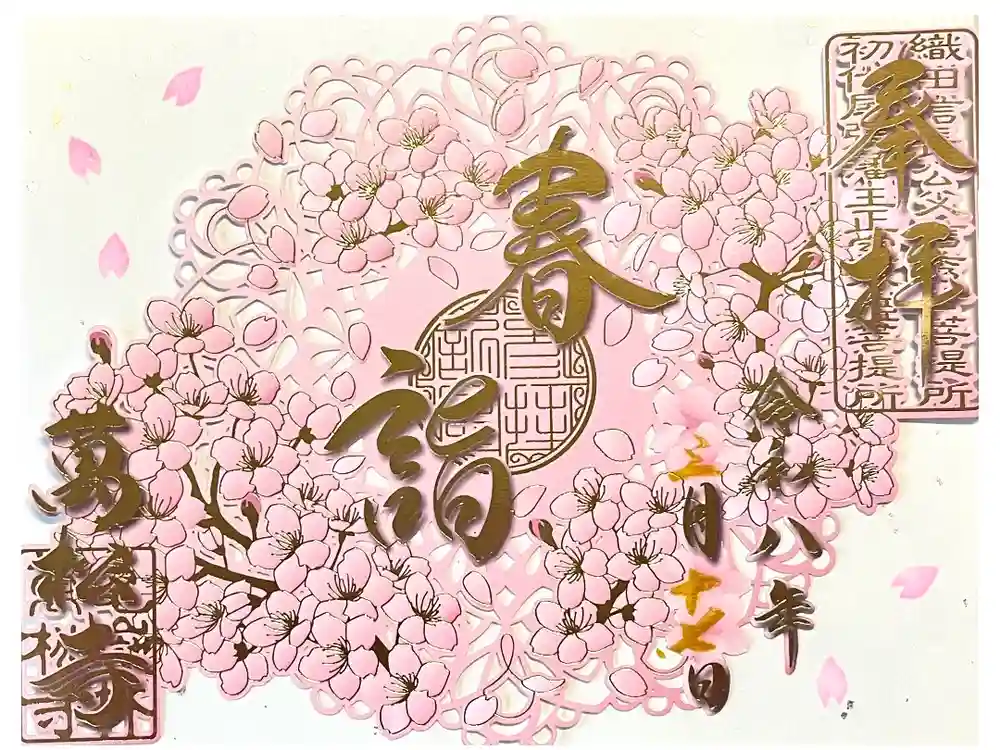 奉拝
織田信長公父信秀公菩提所
初代尾張藩主正室菩提所
春詣
令和八年
三月十七日
萬松寺